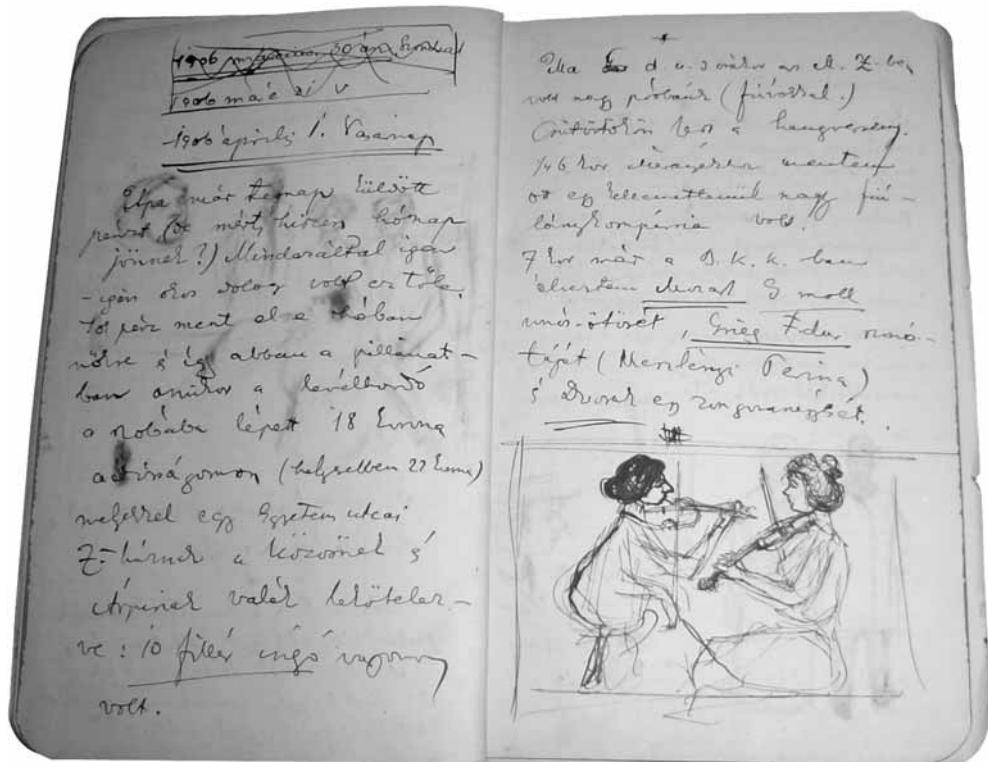 1906
1906 má
1906 április 1. Vasárnap
Apa már tegnap küldött
pénzt (de mért, hiszen hónap
jönnek?) Mindazáltal igen
- igen okos dolog volt ez tőle.
Sok pénz ment el a hóban
nőlre s így abban a pillanat-
ban amikor a levélhordó
a szobába lépett 18 korona
adósságomon (helyesebben 27 korona)
melyekkel egy Egyetem utcai
Z-háznak a közösnek s
Árpinak valék lekötelez-
ve: 10 fillér ingó vagyonom
volt.
Ma d. u. 3 órakor az M. Z.-ben
volt nagy próbánk (fúvókkal.)
Csütörtökön lesz a hangverseny.
1/46 kor mentem
ott egy kellemetlenül nagy fiú-
lánykompánia volt.
7 kor már a B. K. K. ban
élveztem Mozart G moll
vonós-ötösét, Grieg F-dur szoná-
táját (Merslényi Terina)
s Dvorak egy zongoranégyesét.